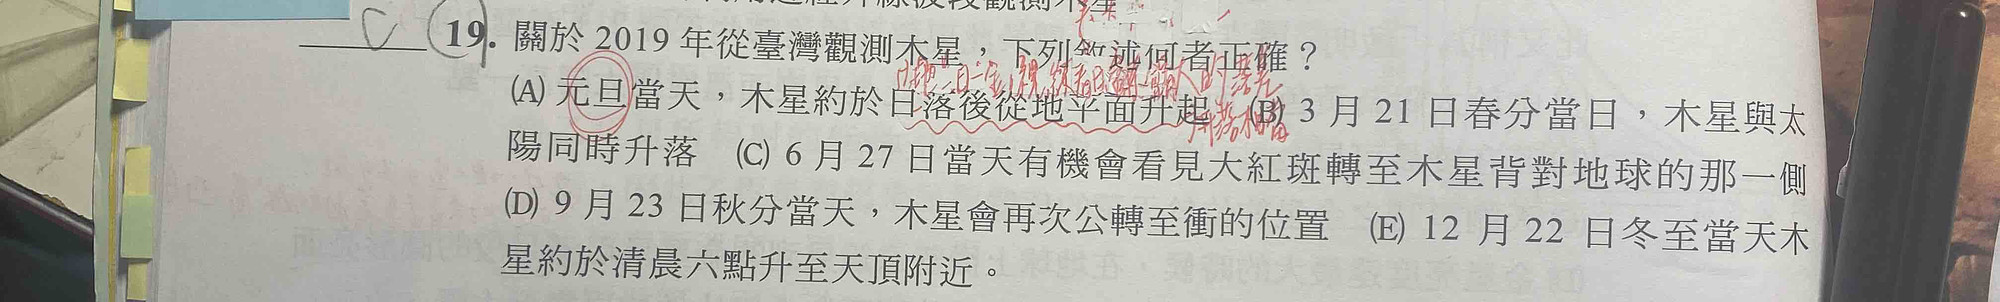 C
19. 關於 2019 年從臺灣觀測木星，下列敘述何者正確？
(A) 元旦當天，木星約於日落後從地平面升起　(B) 3 月 21 日春分當日，木星與太
陽同時升落　(C) 6 月 27 日當天有機會看見大紅斑轉至木星背對地球的那一側
(D) 9 月 23 日秋分當天，木星會再次公轉至衝的位置　(E) 12 月 22 日冬至當天木
星約於清晨六點升至天頂附近。